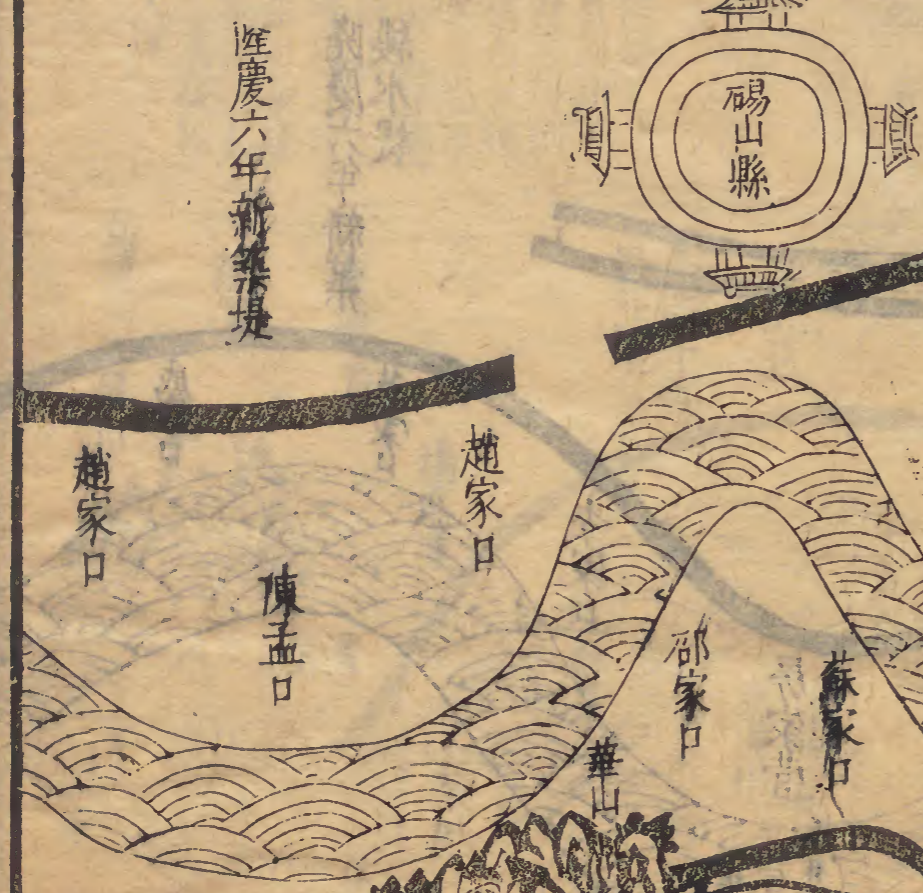 碭山縣
隆慶六年新築堤
趙家口
趙家口
陳孟口
邵家口
蘇家口
華山